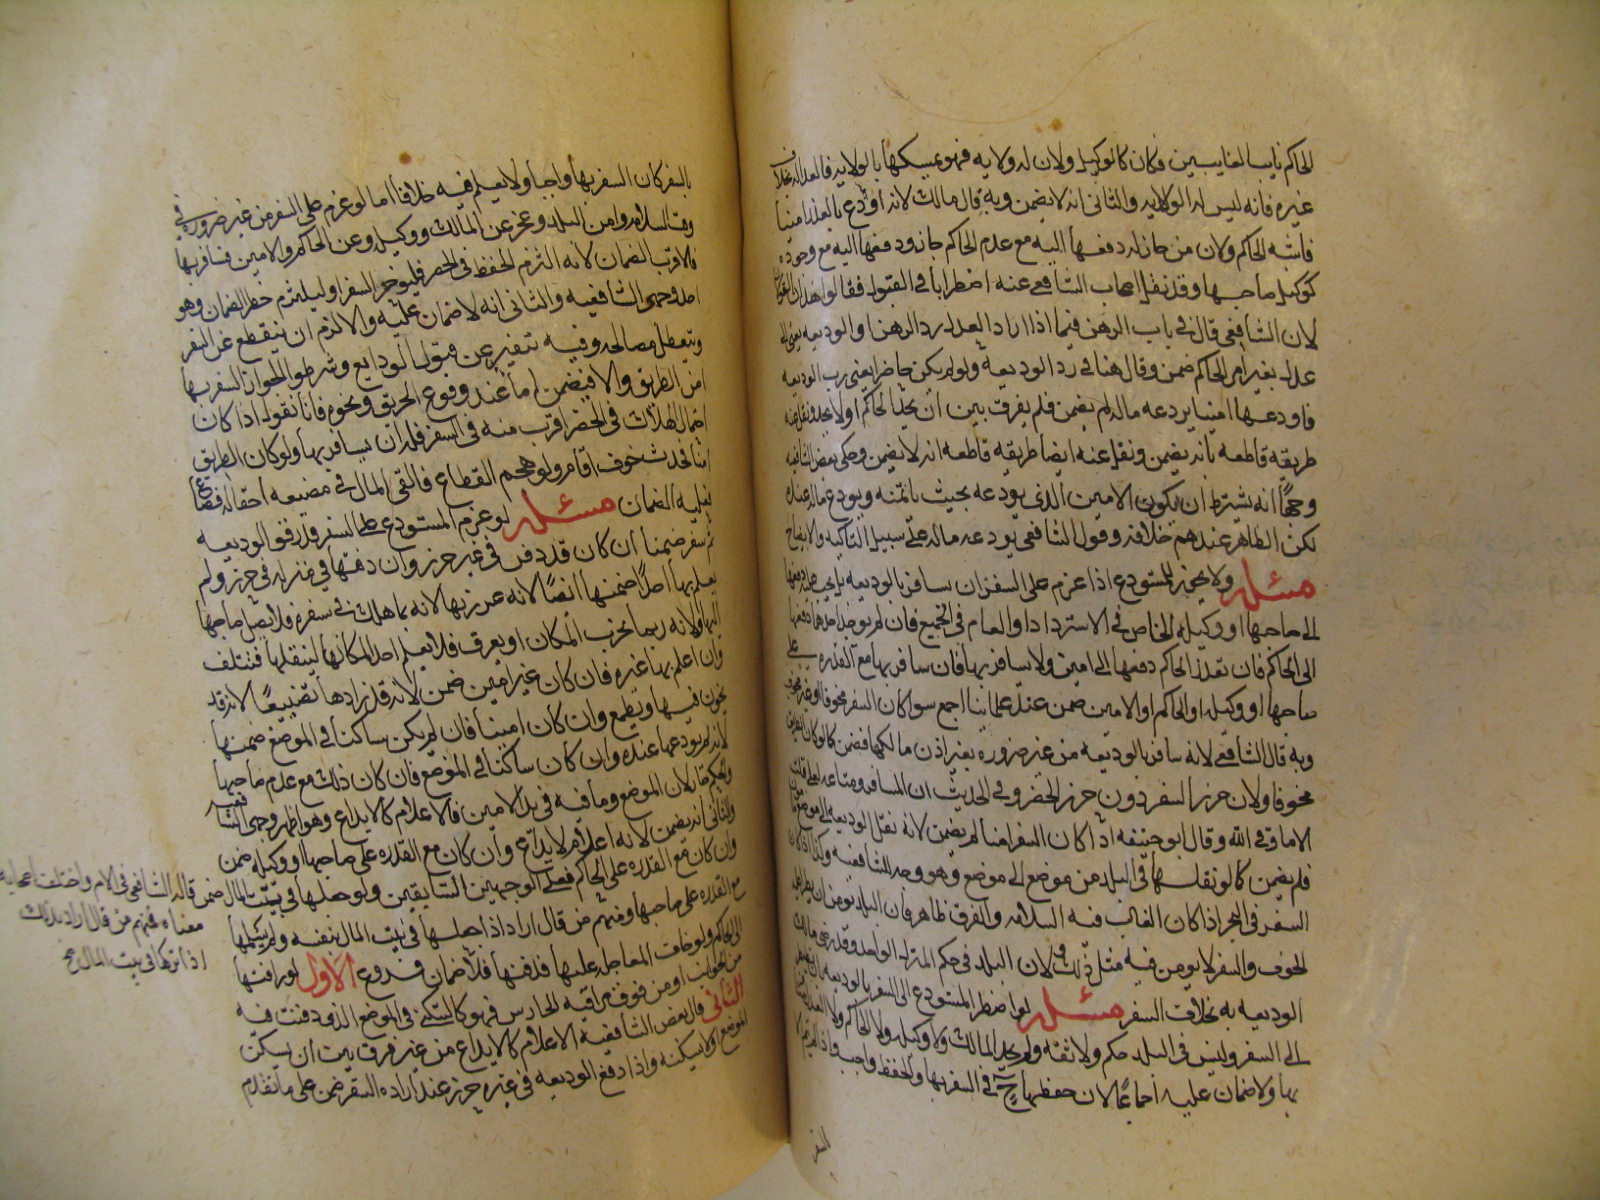 الحاكم نايبا لغايبين فكان كالوكيل ولان له ولاية فهو يمسكها بالولاية فالعدالة بخلاف
غيره فانه ليس له الولاية والثاني انه لا يضمن وبه قال مالك لانه اودع بالعذر امينا
فاشبه الحاكم ولان من جاز له دفعها اليه مع عدم الحاكم جاز دفعها اليه مع وجوده
كوكيل صاحبها وقد نقل اصحاب الشافعي عنه اضطرابا في القبول فقالوا هذان القولان
لان الشافعي قال في باب الرهن فيما اذا اراد العدل رد الرهن او الوديعه يعني الى
عدل بغير امر الحاكم ضمن وقال هنا في رد الوديعة ولو لم يكن حاضرا يعني رب الوديعه
فاودعها امينا يودعه ماله لم يضمن فلم يفرق بين ان يجد الحاكم او لا يجد ونقل عنه
طريقه قاطعه بانه يضمن ونقل عنه ايضا طريقه قاطعه انه لا يضمن وحكى بعض الشافعيه
وجها انه يشترط ان يكون الامين الذي يودعه بحيث ياتمنه ويودع ماله عنده
لكن الظاهر عندهم خلافه وقول الشافعي يودعه ماله على سبيل التاكيد والايضاح
مسئله ولا يجوز للمستودع اذا عزم على السفر ان يسافر بالوديعه بل يجب عليه دفعها
الى صاحبها او وكيله الخاص في الاسترداد او العام في الجميع فان لم يوجد احدهما دفعها
الى الحاكم فان تعذر الحاكم دفعها الى امين ولا يسافر بها فان سافر بها مع القدره على
صاحبها او وكيله او الحاكم او الامين ضمن عند علمائنا اجمع سوا كان السفر مخوفا او غير مخوف
وبه قال الشافعي لانه سافر بالوديعه من غير ضروره بغير اذن مالكها فضمن كما لو كان الطريق
مخوفا ولان حرز السفر دون حرز الحضر وفي الحديث ان المسافر ومتاعه لعلى قلت
الا ما وقى الله وقال ابو حنيفه اذا كان السفر امنا لم يضمن لانه نقل الوديعه الى موضع مامون
فلم يضمن كما لو نقلها في البلد من موضع الى موضع وهو وجه للشافعية وكذا اذا كان
السفر في البحر اذا كان الغالب فيه السلامه والفرق ظاهر فان البلد يومن ان يطرا عليه
الخوف والسفر لا يومن فيه مثل ذلك ولان البلد في حكم المنزل الواحد وقد رضي مالك
الوديعه به بخلاف السفر مسئله لو اضطر المستودع الى السفر بالوديعه بان يضطر
الى السفر وليس في البلد حاكم ولا ثقه ولم يجد المالك ولا وكيله ولا الحاكم ولا العدل سافر
بها ولا ضمان عليه اجماعا لان حفظها ح في السفر بها والحفظ واجب واذا لم يتم الا
السفر
بالسفر كان السفر بها واجبا ولا يعلم فيه خلافا اما لو عزم على السفر من غير ضروره في
وقت السلامه وامن البلد وعجز عن المالك ووكيله وعن الحاكم والامين فسافر بها
فالاقرب الضمان لانه التزم الحفظ في الحضر فليوخر السفر او ليلتزم خطر الضمان وهو
احد وجهي الشافعيه والثاني انه لا ضمان عليه والا لزم ان ينقطع عن السفر
وتتعطل مصالحه وفيه تنفير عن قبول الودايع وشرطوا لجواز السفر بها
امن الطريق والا فيضمن اما عند وقوع الحريق ونحوه فانا نقول اذا كان
احتمال الهلاك في الحضر اقرب منه في السفر فله ان يسافر بها ولو كان الطريق
امنا فحدث خوف اقام ولو هجم القطاع فالقى المال في مضيعه اخفا له فضاع
فعليه الضمان مسئله لو عزم المستودع على السفر فدفن الوديعه
ثم سافر ضمنها ان كان قد دفن في غير حرز وان دفنها في منزله في حرز ولم
يعلم بها احدا ضمنها ايضا لانه غرر بها لانه بما هلك في سفره فلا يصل صاحبها
اليها ولانه ربما يخرب المكان او يغرق فلا يعلم احد مكانها لينقلها فتتلف
وان اعلم بها غيره فان كان غير امين ضمن لانه قد زادها تضييعا لانه قد
يخون فيها ويطمع وان كان امينا فان لم يكن ساكنا في الموضع ضمنها
لانه لم يودعها عنده وان كان ساكنا في الموضع فان كان ذلك مع عدم صاحبها
والحاكم جاز لان الموضع وما فيه في يد الامين فالاعلام كالايداع وهو اظهر وجهي الشافعيه
والثاني انه يضمن لانه اعلام لا ايداع وان كان مع القدره على صاحبها او وكيله ضمن
وان كان مع القدره على الحاكم فعلى الوجهين السابقين ولو جعلها في بيت المال ضمن قاله الشافعي في الام واختلف اصحابه
معناه فمنهم من قال اراد بذلك
اذا تركها في بيت المال صح
مع القدره على صاحبها ومنهم من قال اراد اذا جعلها في بيت المال بنفسه ولم يسلمها
الى الحاكم ولو خاف المعاجله عليها فدفنها فلا ضمان فروع الاول لو راقبها
من الجوانب او من فوق مراقبه الحارس فهو كالسكنى في الموضع الذي دفنت فيه
الثاني قال بعض الشافعيه الاعلام كالايداع من غير فرق بين ان يسكن
الموضع او لا يسكنه واذا دفع الوديعه في غيره حرز عند اراده السفر ضمن على ما تقدم